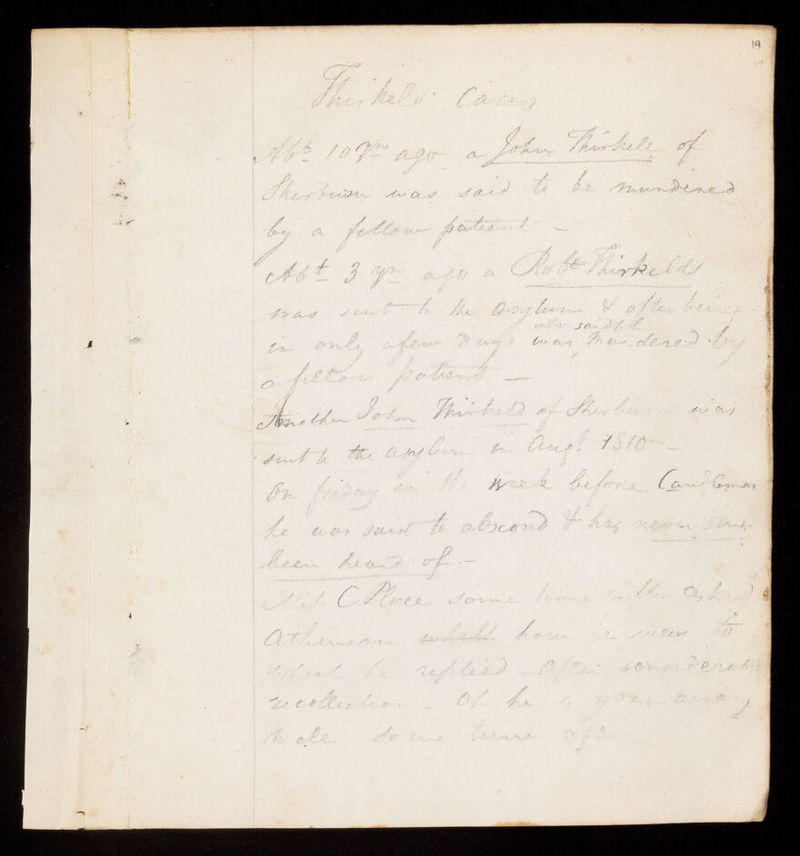 19
Thirkeld Cases
Abt 10 yrs ago a John Thirkell of
Sherburn was said to be murdered
by a fellow patient –
Abt 3 yrs ago a Robt Thirkeld
was sent to the asylum & after being
in only a few days was also said to be murdered by
a fellow patient —
Another John Thirkeld of Sherburn was
sent to the asylum in Augt 1810 –
On friday in the week before Candlemas
he was said to abscond & has never since
been heard of. –
C Place some time after asked
Atkinson how he was to
which he replied after considerable
recollection – Oh he is gone away
some time ago –